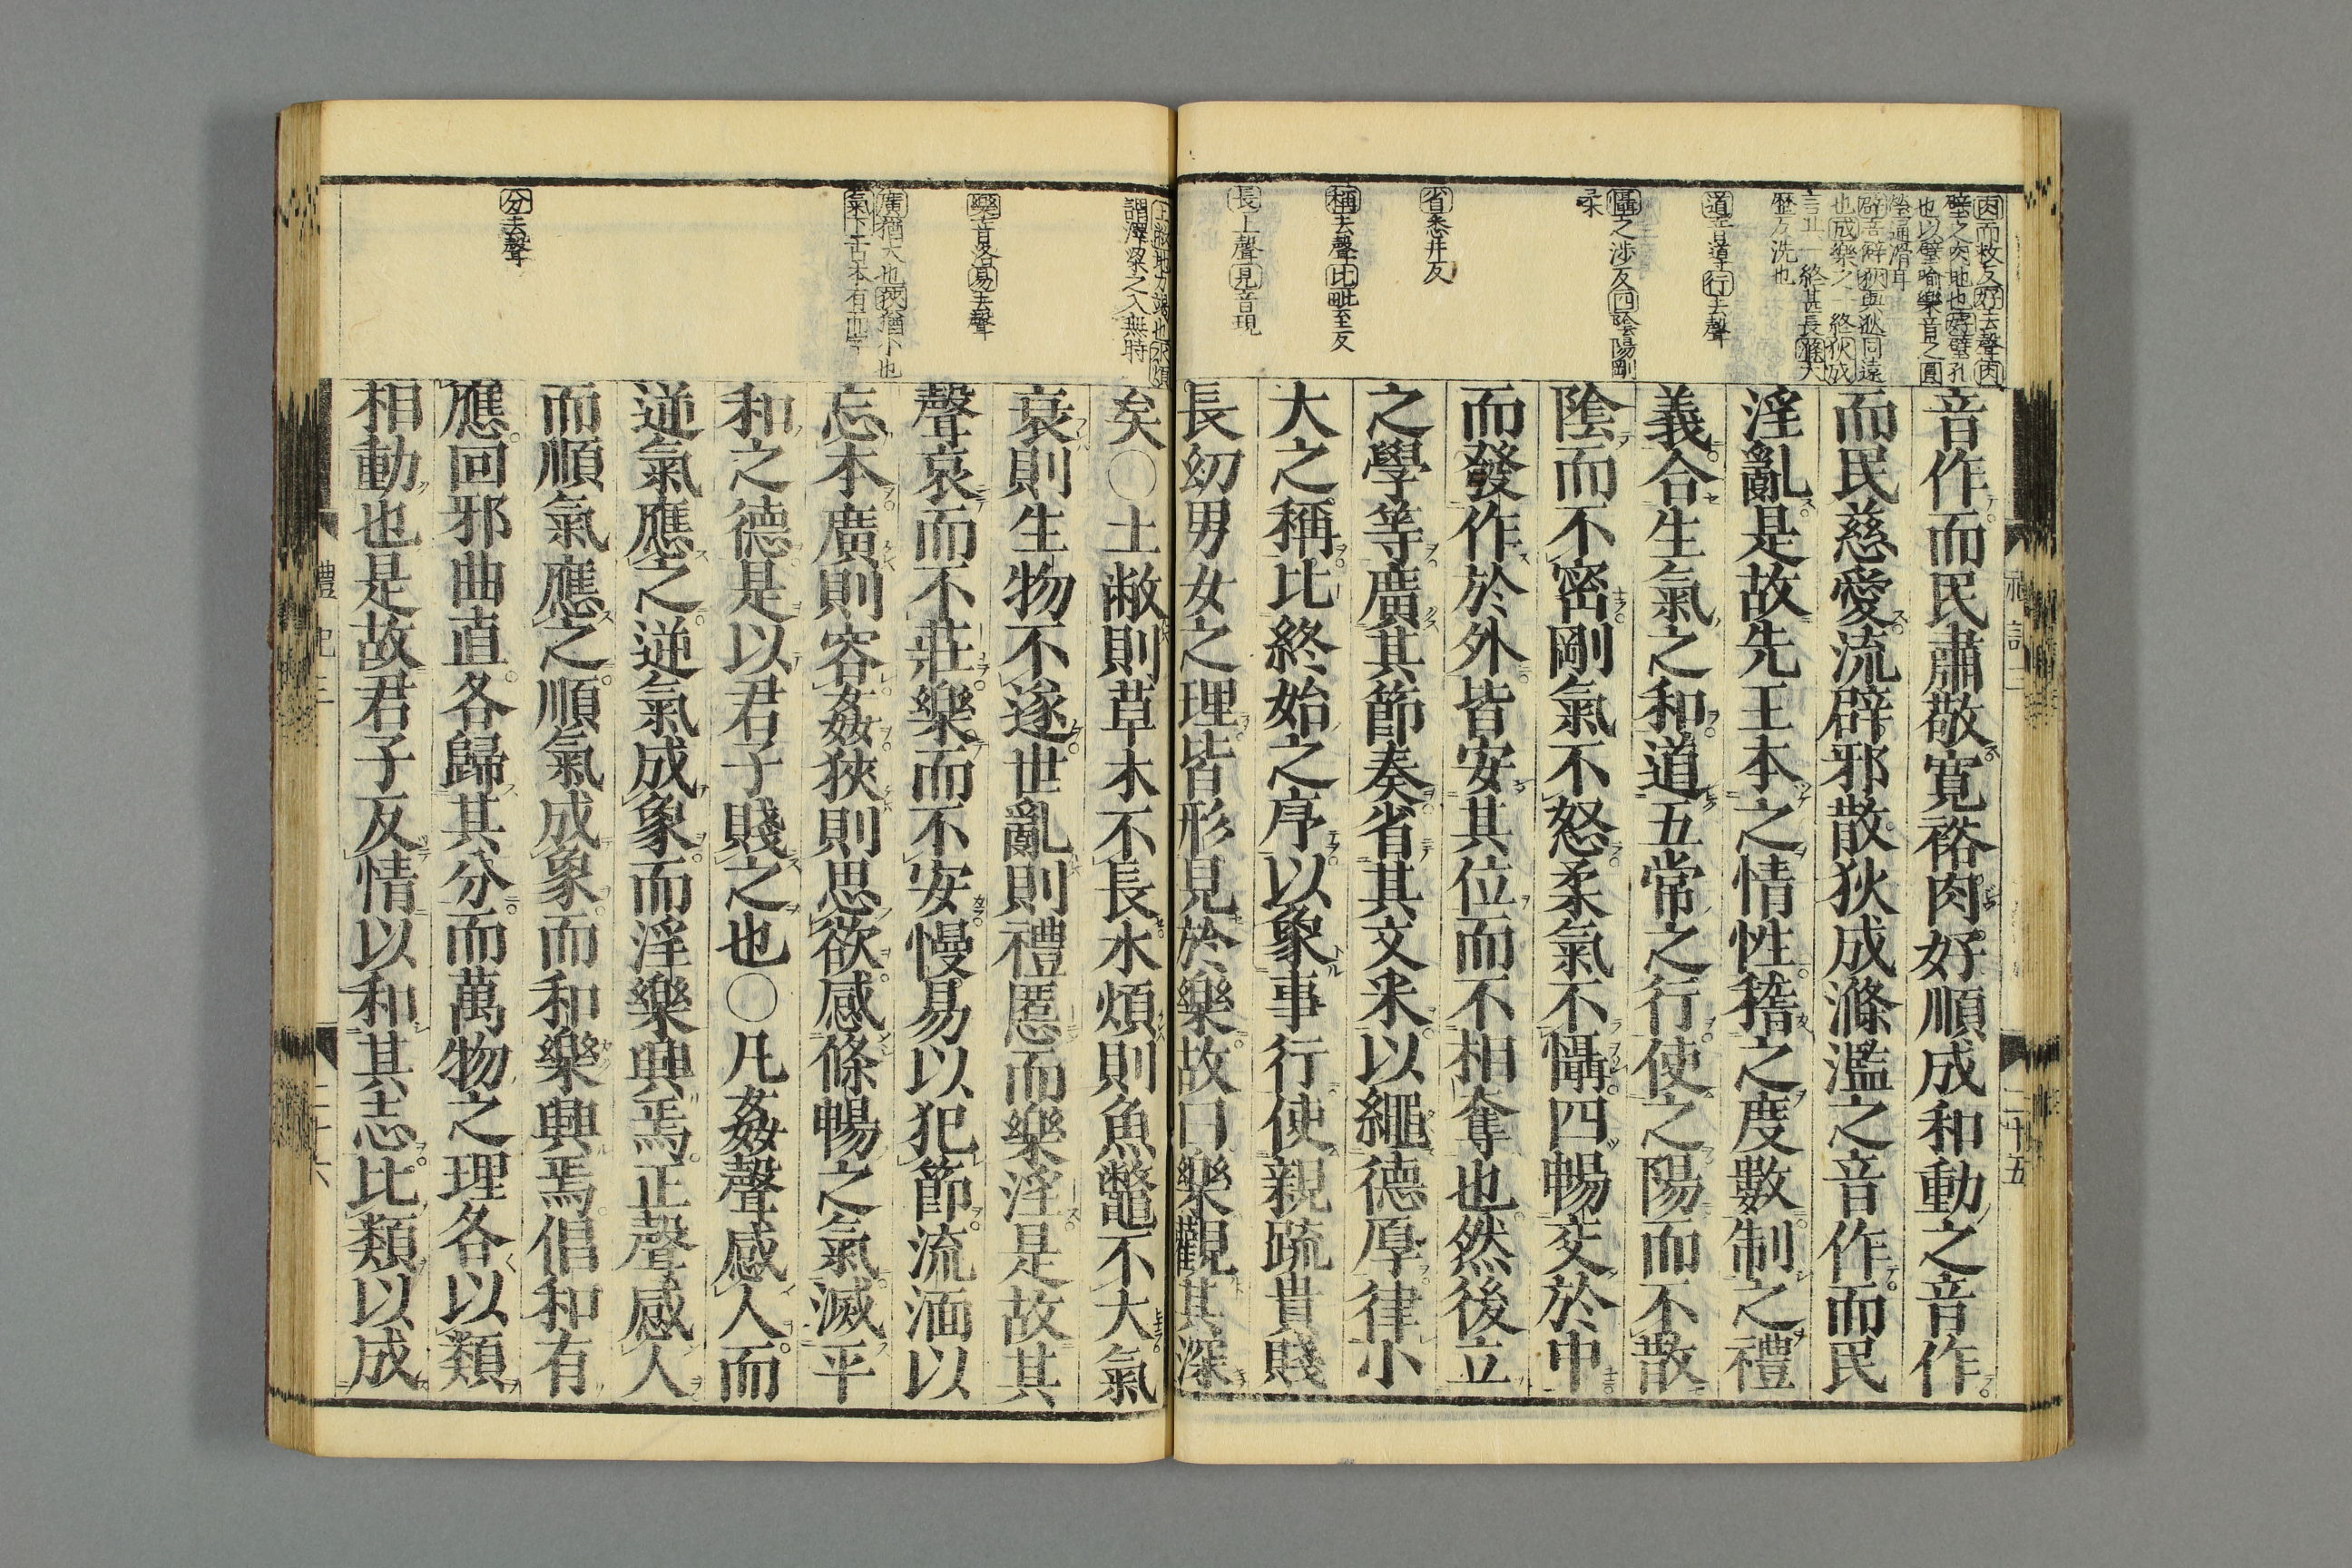 肉而救反好去聲肉
璧之肉地也好璧孔
也以璧喻樂音之圓
瑩通滑耳
辟音僻狄與狄同遠
也成樂之一終狄成
言其一終甚長滌大
歴反洗也
道音導行去聲
懾之涉反四陰陽剛
柔
省悉井反
稱去聲比毗至反
長上聲見音現
音作而民肅敬寬裕肉好順成和動之音作
而民慈愛流辟邪散狄成滌濫之音作而民
淫亂是故先王本之情性稽之度數制之禮
義合生氣之和道五常之行使之陽而不散
陰而不密剛氣不怒柔氣不懾四暢交於中
而發作於外皆安其位而不相奪也然後立
之學等廣其節奏省其文采以繩德厚律小
大之稱比終始之序以象事行使親疏貴賤
長幼男女之理皆形見於樂故曰樂觀其深
二十五
土敝地力竭也水煩
謂澤梁之入無時
樂音洛易去聲
廣猶大也狹猶小也
氣下舌本有也字
分去聲
矣○土敝則草木不長水煩則魚鼈不大氣
衰則生物不遂世亂則禮慝而樂淫是故其
聲哀而不莊樂而不安慢易以犯節流湎以
忘本廣則容姦狹則思欲感條暢之氣滅平
和之德是以君子賤之也○凡姦聲感人而
逆氣應之逆氣成象而淫樂興焉正聲感人
而順氣應之順氣成象而和樂興焉倡和有
應回邪曲直各歸其分而萬物之理各以類
相動也是故君子反情以和其志比類以成
禮記三
二十六